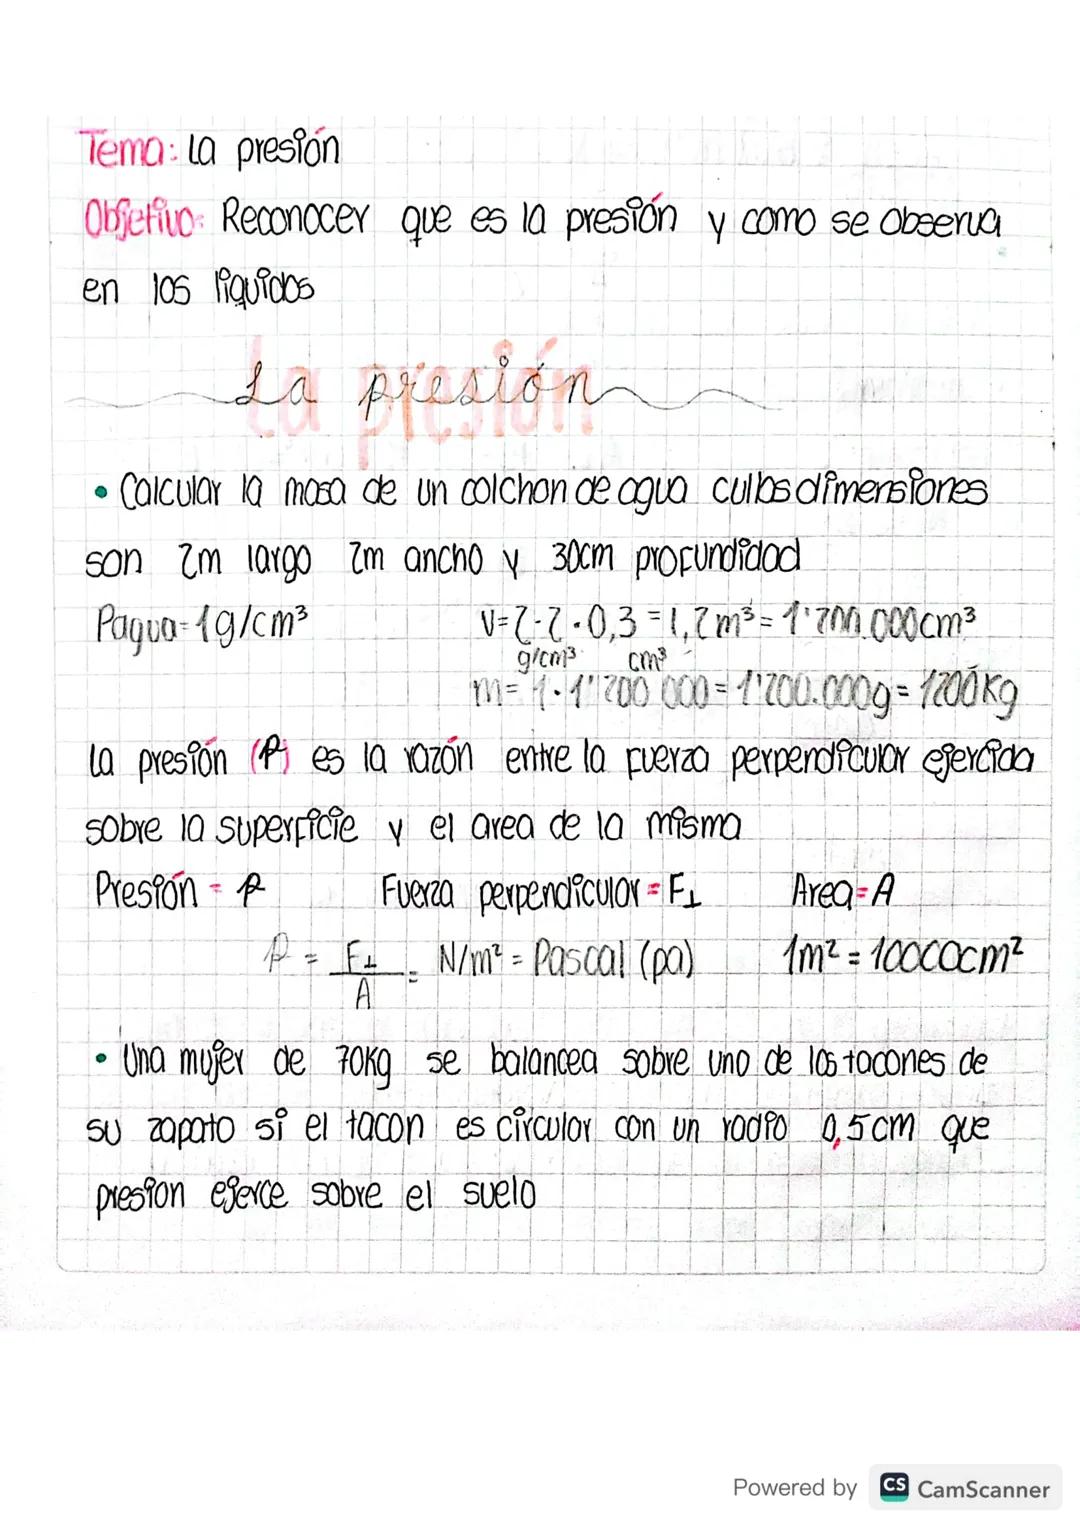 Tema: La presión
Objetivo: Reconocer que es la presión y como se observa
en los liquidos
La presión
• Calcular la masa de un colchon de agua cullas dimensiones
son 2m largo 2m ancho y 30cm profundidad
Pagua=1g/cm³ V=2·2·0,3=1,2m³=1'200.000cm³
g/cm³ cm³
m=1·1'200 000=1'200.000g=1200Kg
La presión (P) es la razón entre la fuerza perpendicular ejercida
sobre la superficie y el area de la misma
Presión = P Fuerza perpendicular = F⊥ Area=A
P = F⊥/A = N/m² = Pascal (pa) 1m² = 10000cm²
• Una mujer de 70Kg se balancea sobre uno de los tacones de
su zapato si el tacon es circular con un radio 0,5cm que
presion ejerce sobre el suelo
Powered by CS CamScanner